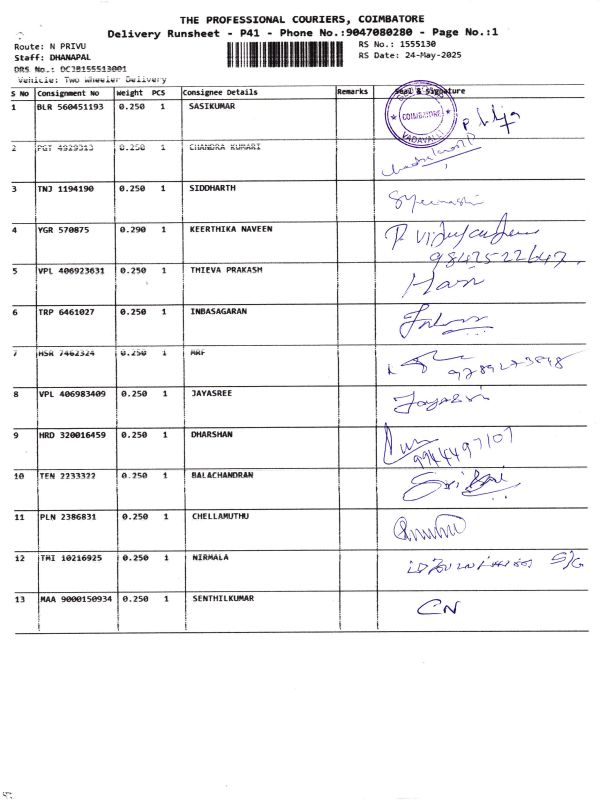 THE PROFESSIONAL COURIERS, COIMBATORE
Delivery Runsheet - P41 - Phone No.:9047080280 - Page No.:1
Route: N PRIVU
RS No.: 1555130
Staff: DHANAPAL
RS Date: 24-May-2025
DRS No.: DCJB155513001
Vehicle: Two Wheeler Delivery
S No Consignment No Weight PCS Consignee Details Remarks Seal & Signature
1 BLR 560451193 0.250 1 SASIKUMAR
COIMBATORE
VADAVALLI
2 PGT 4929313 0.250 1 CHANDRA KUMARI
3 TNJ 1194190 0.250 1 SIDDHARTH
4 YGR 570875 0.290 1 KEERTHIKA NAVEEN
9842522647
5 VPL 406923631 0.250 1 THIEVA PRAKASH Hari
6 TRP 6461027 0.250 1 INBASAGARAN
7 HSR 7462324 0.250 1 MRF
8 VPL 406983409 0.250 1 JAYASREE
9 HRD 320016459 0.250 1 DHARSHAN
9944497107
10 TEN 2233322 0.250 1 BALACHANDRAN
11 PLN 2386831 0.250 1 CHELLAMUTHU
12 TMI 10216925 0.250 1 NIRMALA S/G
13 MAA 9000150934 0.250 1 SENTHILKUMAR CN